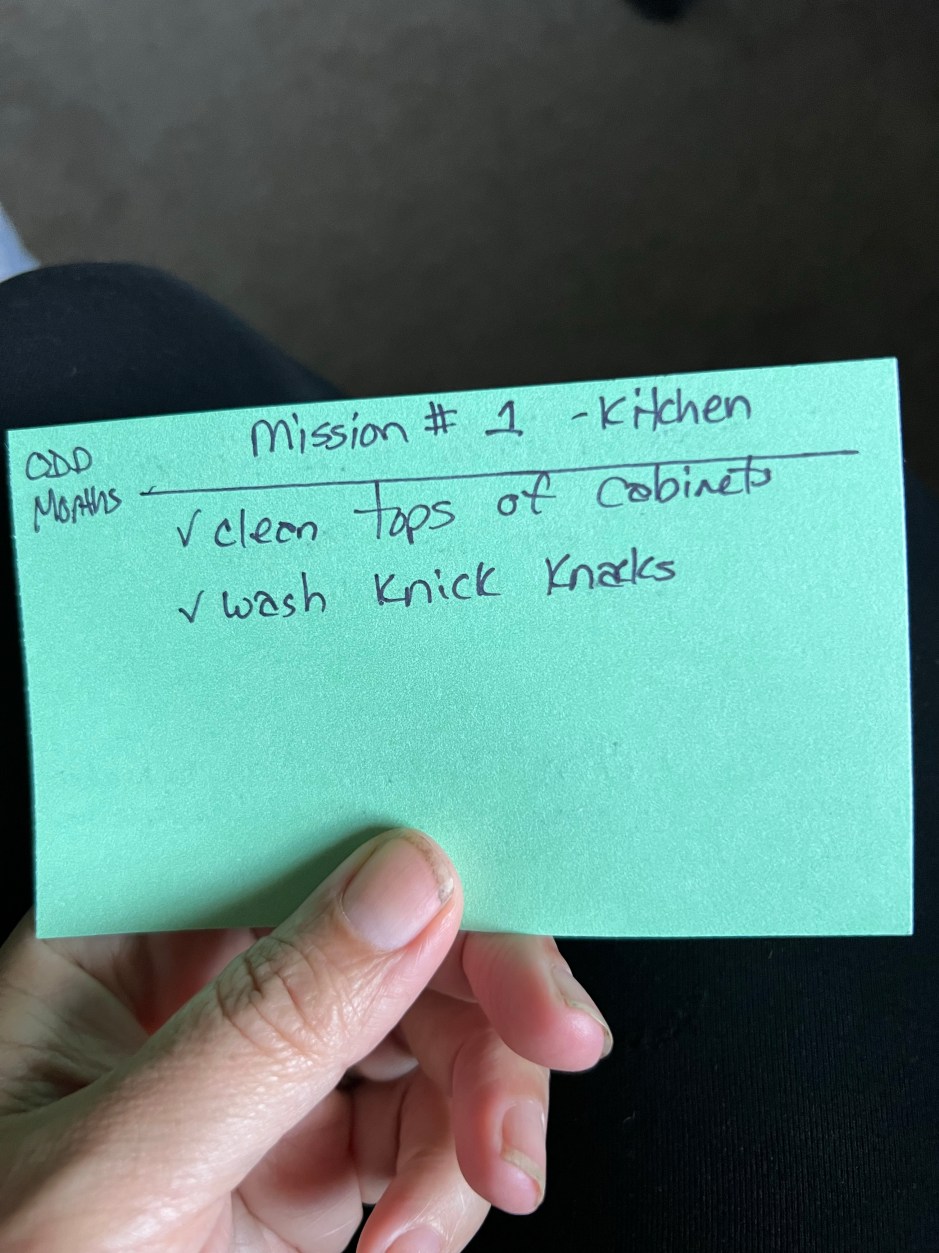 Mission # 1 - Kitchen
ODD
Months
✓ clean tops of cabinets
✓ wash Knick Knacks